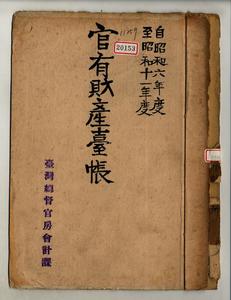 自昭和六年度
至昭和十一年度
官有財產臺帳
20153
臺灣總督官房會計課